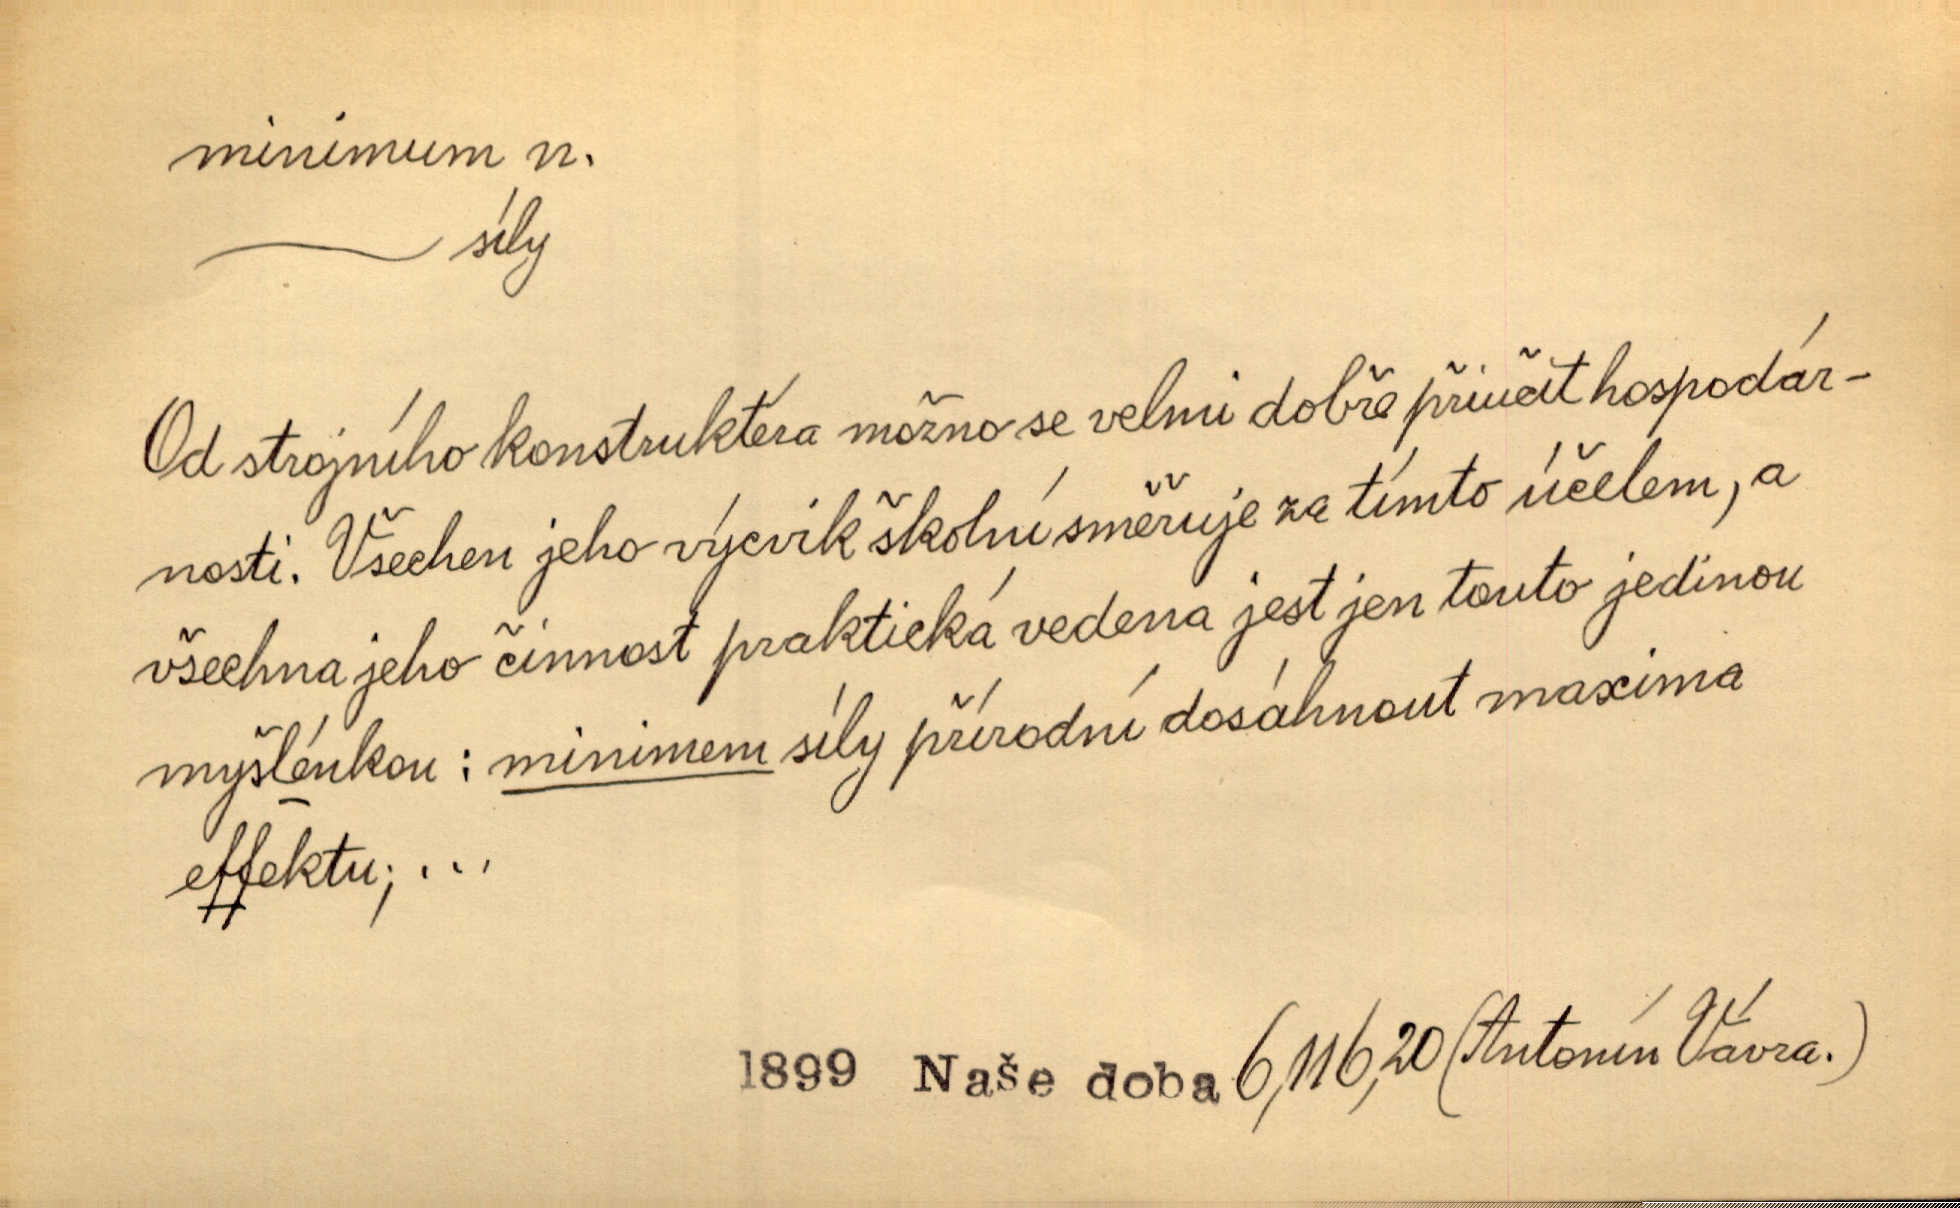 minimum n.
síly
Od strojního konstruktéra možno se velmi dobře přiučit hospodár-
nosti. Všechen jeho výcvik školní směřuje za tímto účelem, a
všechna jeho činnost praktická vedena jest jen touto jedinou
myšlénkou : minimem síly přírodní dosáhnout maxima
effektu; ...
1899 Naše doba 6,116,20 (Antonín Vávra.)